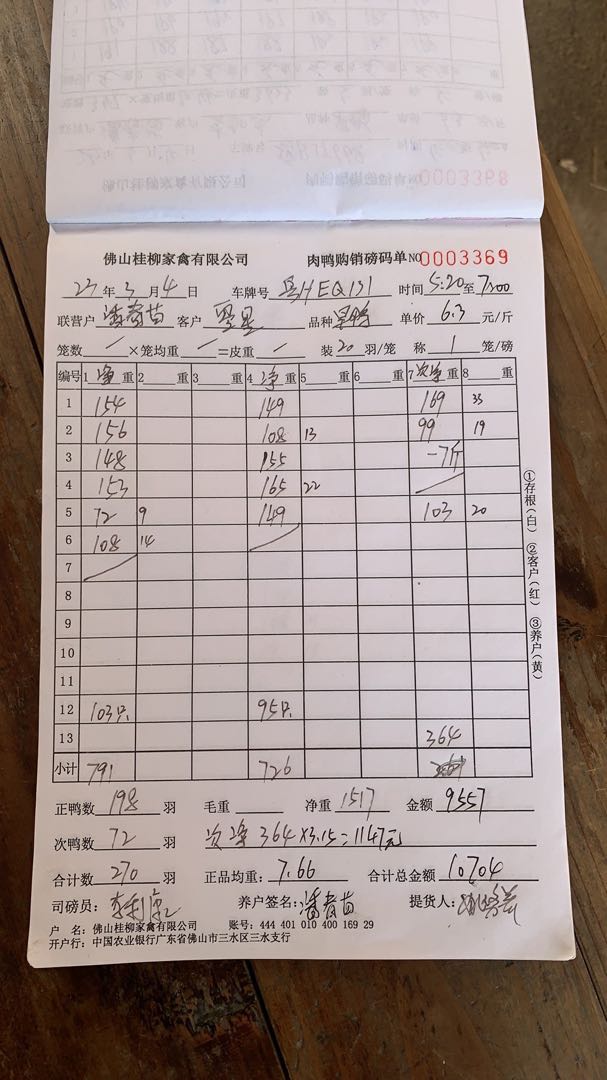 0003368
佛山桂柳家禽有限公司 肉鸭购销磅码单 NO 0003369
23年3月4日 车牌号 粤HEQ131 时间 5:20至7:00
联营户 潘育苗 客户 品种 单价 6.3 元/斤
笼数 / ×笼均重 / =皮重 / 装20羽/笼 称 1 笼/磅
编号 1 净重 2 重 3 重 4 净重 5 重 6 重 7 次净重 8 重
1 154 149 169 33
2 156 108 13 99 19
3 148 155 -7斤
4 153 165 22 /
5 72 9 149 103 20
6 108 14 /
7 /
8
9
10
11
12 103只 95只
13 364
小计 791 726
①存根(白) ②客户(红) ③养户(黄)
正鸭数 198 羽 毛重 净重 1517 金额 9557
次鸭数 72 羽 次净 364×3.15=1147元
合计数 270 羽 正品均重: 7.66 合计总金额 10704
司磅员: 养户签名: 潘育苗 提货人:
户 名: 佛山桂柳家禽有限公司 账号: 444 401 010 400 169 29
开户行: 中国农业银行广东省佛山市三水区三水支行